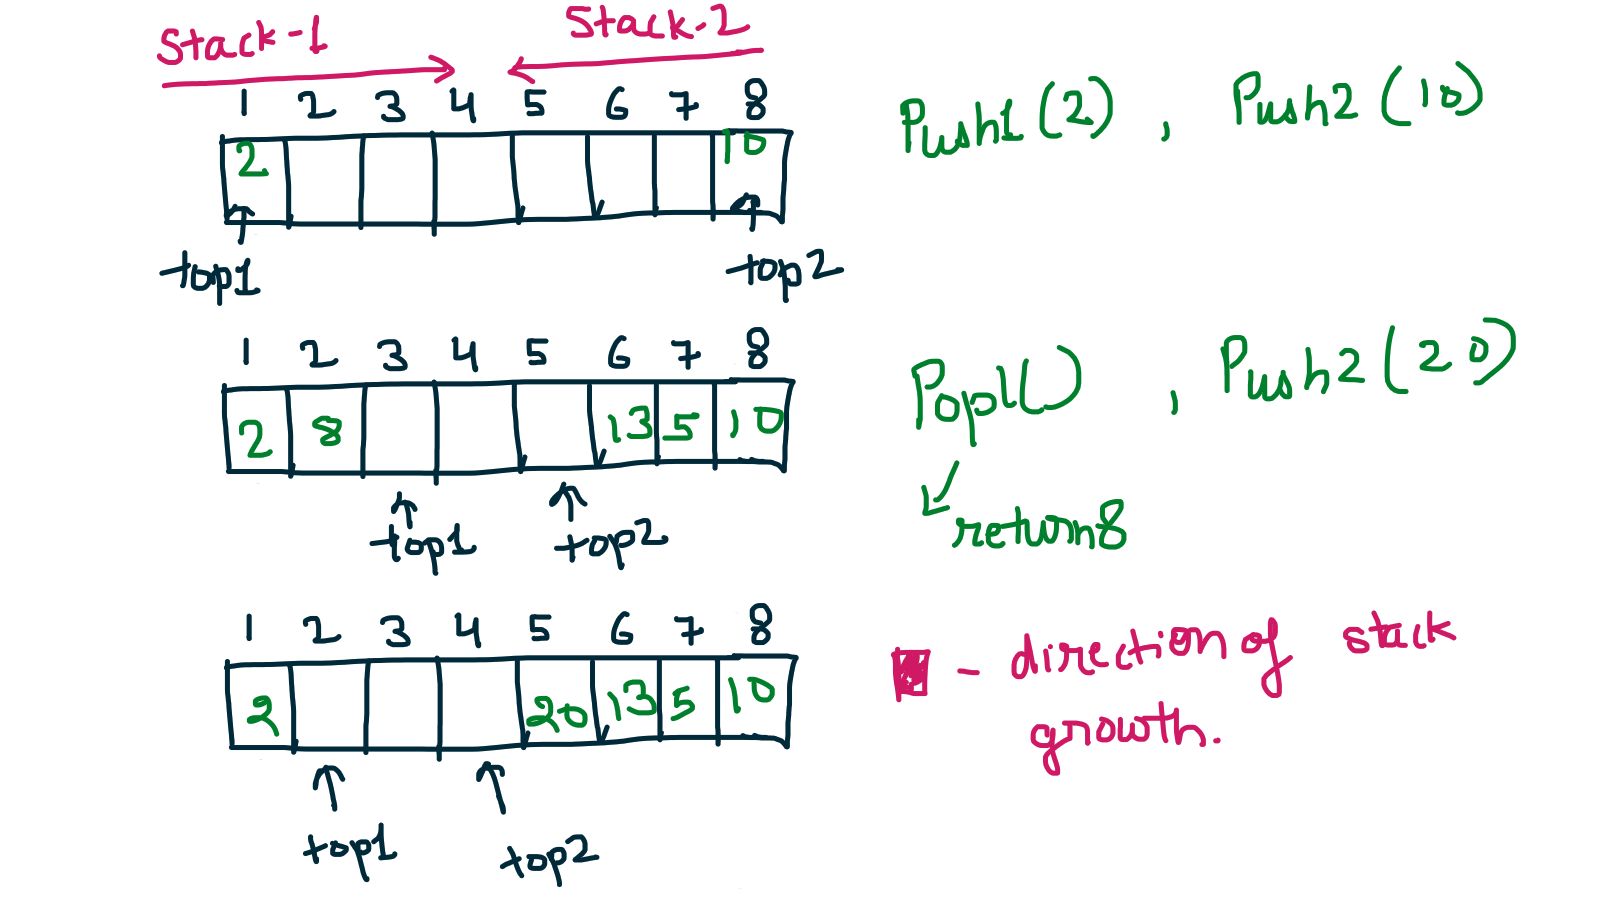 Stack-1 Stack-2
1 2 3 4 5 6 7 8
2 10
top1 top2
Push1(2) , Push2(10)
1 2 3 4 5 6 7 8
2 8 13 5 10
top1 top2
Pop1() , Push2(20)
return8
1 2 3 4 5 6 7 8
2 20 13 5 10
top1 top2
- direction of stack
growth.